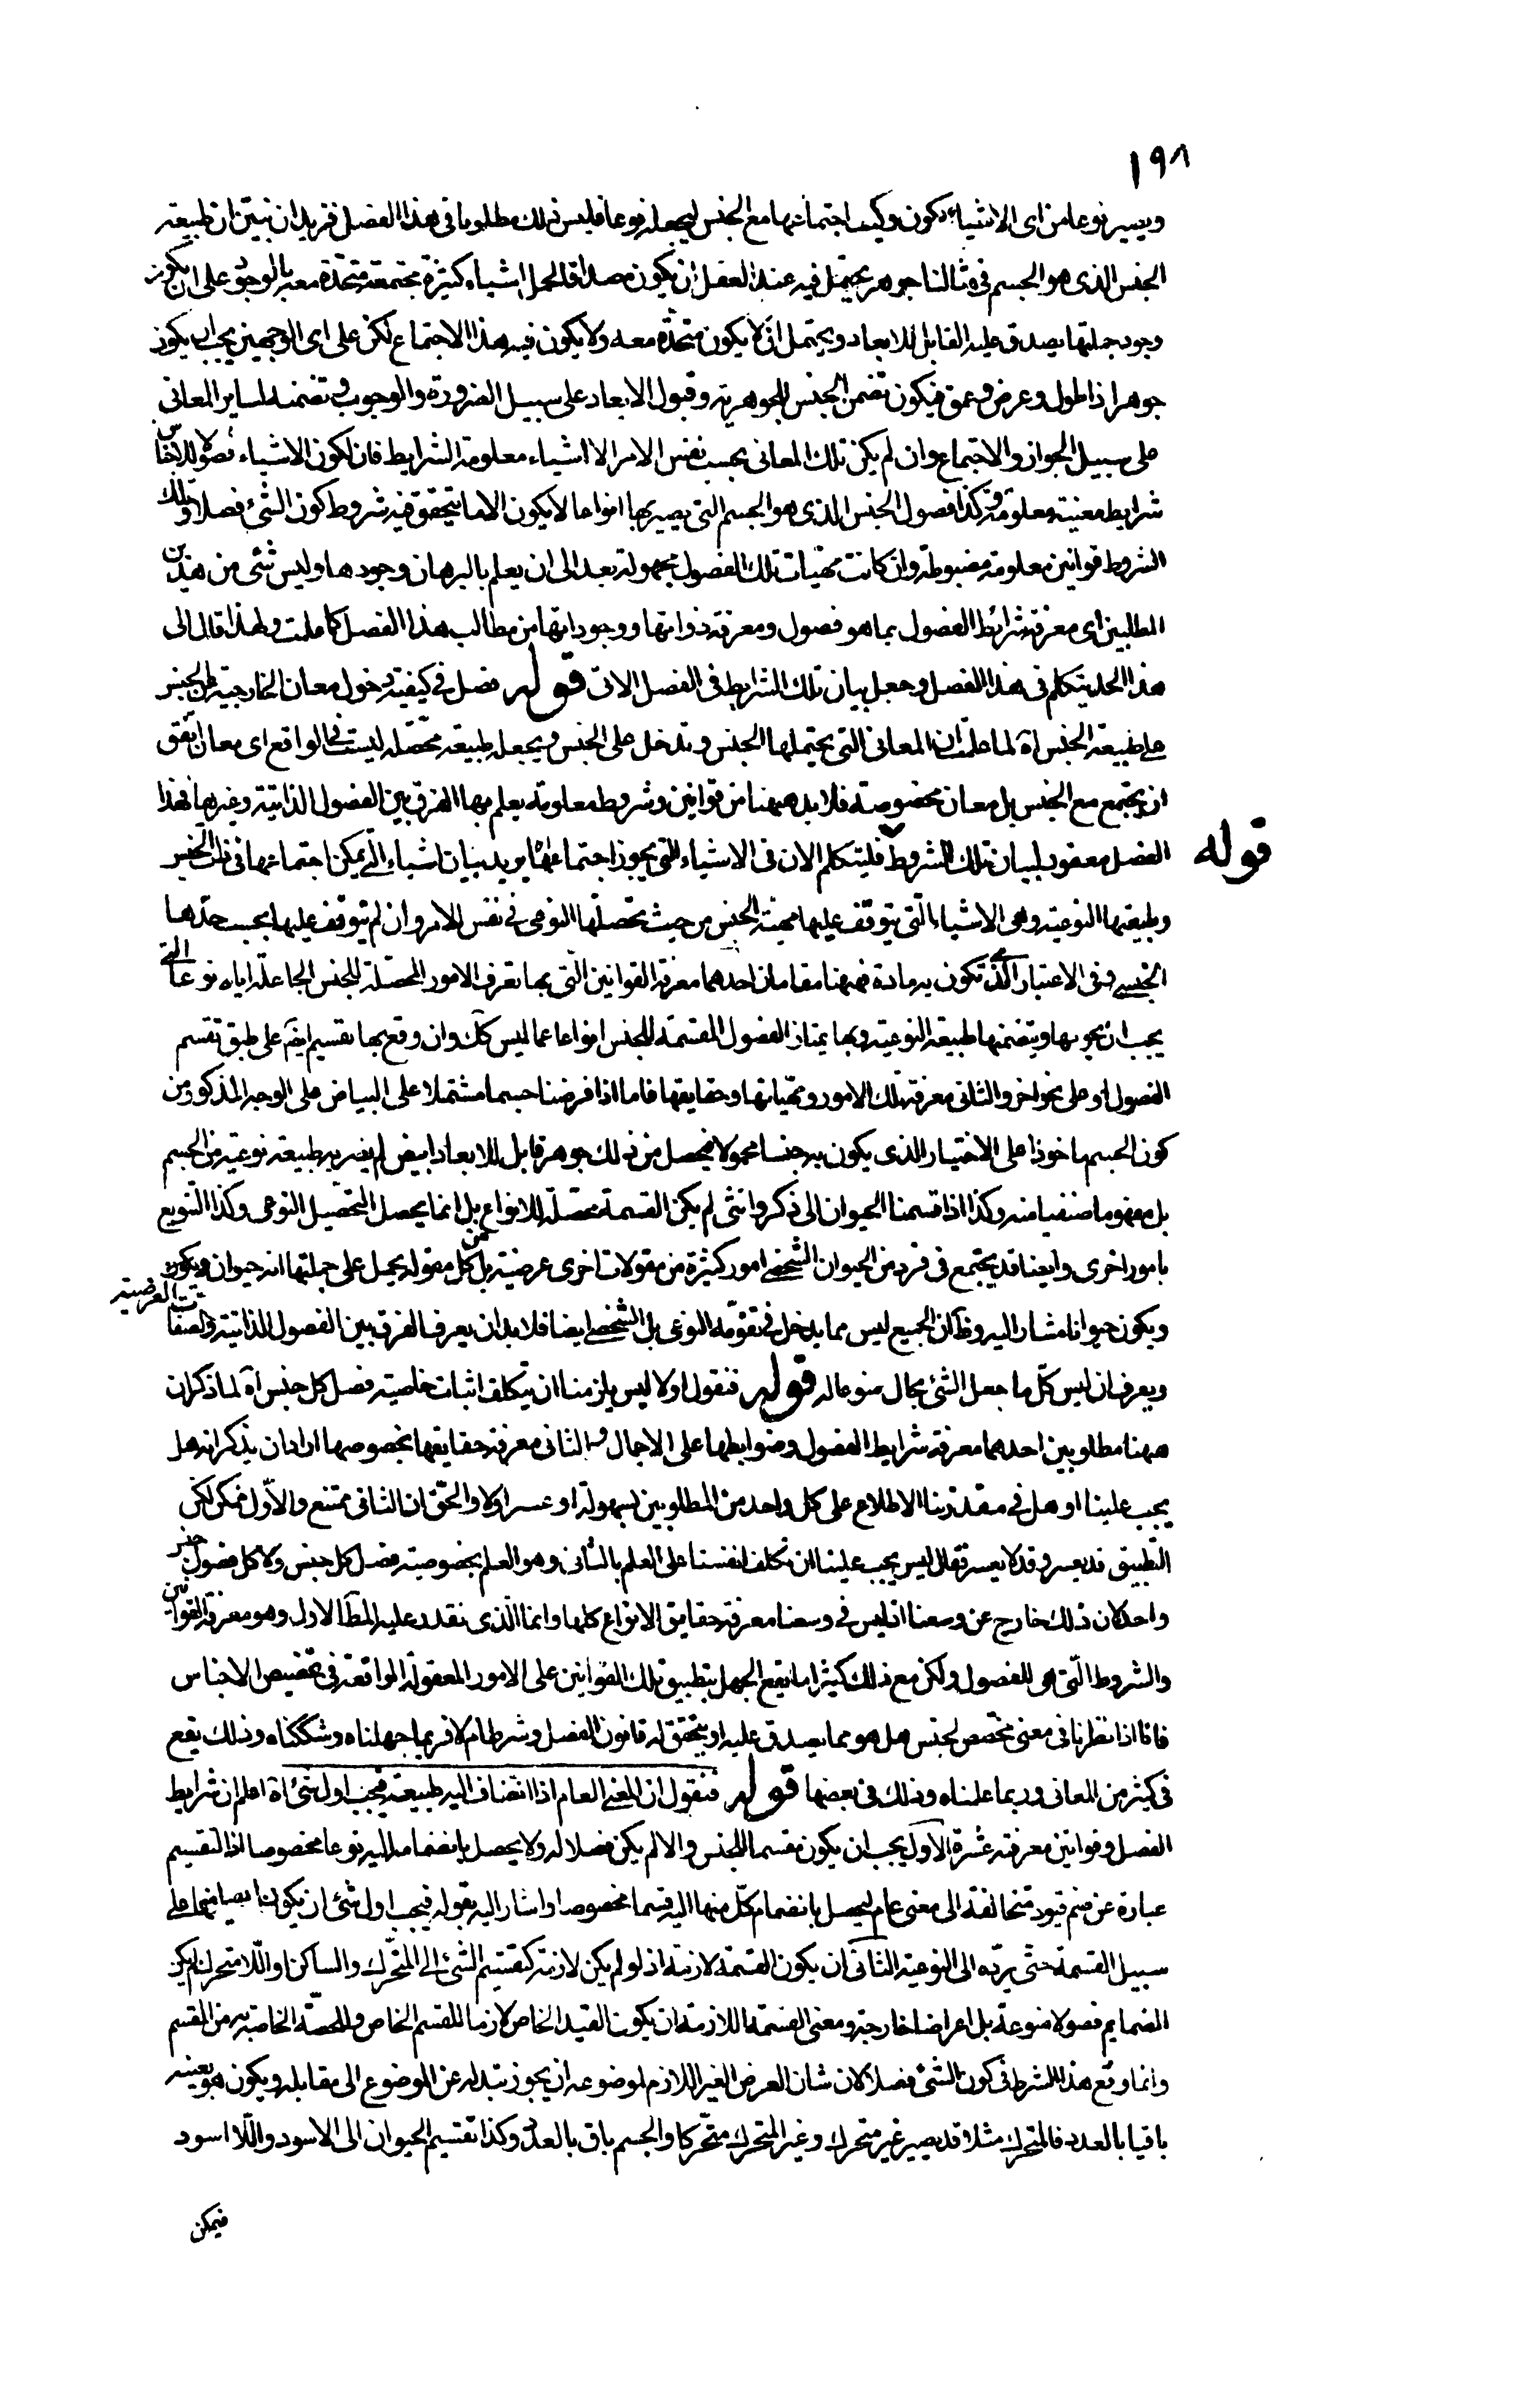 ١٩٨
ويصير نوعا من اى الاشياء يكون وكيف اجتماعها مع الجنس ليجعله نوعا فليس ذلك مطلوبا فى هذا الفصل فنريد ان نبيّن ان طبيعة
الجنس الذى هو الجسم فى مثالنا جوهر يحتمل فيه عند العقل ان يكون مصداقا لحمل اشياء كثيرة مجتمعة متحدة معه بالوجود على ان يكون
وجود جملتها يصدق عليه القابل للابعاد ويحتمل ان لا يكون متحدة معه ولا يكون فيه هذا الاجتماع لكن على اى الوجهين يجب ان يكون
جوهرا ذا طول وعرض وعمق فيكون تضمن الجنس للجوهرية وقبول الابعاد على سبيل الضرورة والوجوب وتضمنه لساير المعانى
على سبيل الجواز والاجتماع وان لم يكن تلك المعانى بحسب نفس الامر الا اشياء معلومة الشرايط فان لكون الاشياء فصولا للاجناس
شرايط معينة معلومة وكذا فصول الجنس الذى هو الجسم التى يصير بها انواعا لا يكون الا ما يتحقق فيه شروط كون الشئ فصلا وتلك
الشروط قوانين معلومة مضبوطة وان كانت مهيات تلك الفصول مجهولة بعد الى ان يعلم بالبرهان وجودها وليس شئ من هذين
المطلبين اى معرفة شرائط الفصول بما هو فصول ومعرفة ذواتها ووجوداتها من مطالب هذا الفصل كما علمت ولهذا قال الى
هذا الحد يتكلم فى هذا الفصل وجعل بيان تلك الشرايط فى الفصل الاتى قوله فصل فى كيفية دخول معان الخارجية عن الجنس
على طبيعة الجنس آه لما علمت ان المعانى التى يحتملها الجنس وتدخل على الجنس ويجعله طبيعة محصّلة ليست فى الواقع اى معان اتفق
ان يجتمع مع الجنس بل معان مخصوصة فلا بد ههنا من قوانين وشروط معلومة يعلم بها الفرق بين الفصول الذاتية وغيرها فهذا
الفصل معقود لبيان تلك الشروط قوله فليتكلم الان فى الاشياء التى يجوز اجتماعها يريد بيان اشياء التى يمكن اجتماعها فى ذلك الجنس
وطبيعتها النوعية وهى الاشياء التى يتوقف عليها مهية الجنس من حيث تحصلها النوعى فى نفس الامر وان لم يتوقف عليها بحسب حدّها
الجنسى وفى الاعتبار الذى تكون به مادة فههنا مقامان احدهما معرفة القوانين التى بها تعرف الامور المحصلة للجنس الجاعلة اياه نوعا التى
يجب ان يحويها ويتضمنها طبيعة النوعية وبها يمتاز الفصول المقسمة للجنس انواعا عما ليس كك وان وقع بها تقسيم ايضا على طبق تقسيم
الفصول او على نحو اخر والثانى معرفة تلك الامور ومهياتها وحقايقها فاما اذا فرضنا جسما مشتملا على البياض على الوجه المذكور من
كون الجسم ماخوذا على الاختيار الذى يكون به جنسا محمولا فيحصل من ذلك جوهر قابل للابعاد ابيض لم يصر به طبيعة نوعية من الجسم
بل مفهوما صنفيا منه وكذا اذا قسمنا الحيوان الى ذكر وانثى لم يكن القسمة محصّلة للانواع بل انما يحصل التحصيل النوعى وكذا التنويع
بامور اخرى وايضا قد يجتمع فى فرد من الحيوان الشخصى امور كثيرة من مقولات اخرى عرضية بل من كل مقولة يحمل على جملتها انه حيوان ويكون
ويكون حيوانا مشارا اليه وظ ان الجميع ليس مما يدخل فى تقوّمه النوعى بل الشخصى ايضا فلا بد ان يعرف الفرق بين الفصول الذاتية والصفات العرضية
ويعرف ان ليس كلّ ما جعل الشئ بحال منوعا له قوله فنقول اولا ليس يلزمنا ان يتكلف اثبات خاصية فصل كل جنس آه لما ذكر ان
ههنا مطلوبين احدهما معرفة شرايط الفصول وضوابطها على الاجمال والثانى معرفة حقايقها بخصوصها اراد ان يذكر انه هل
يجب علينا او هل فى مقدرتنا الاطلاع على كل واحد من المطلوبين بسهولة او عسر اولا والحقّ ان الثانى ممتنع والاوّل ممكن لكن
التطبيق قد يعسر وقد لا يعسر فقال ليس يجب علينا ان نكلف انفسنا على العلم بالثانى وهو العلم بخصوصية فصل كل جنس ولا كل فصول جنس
واحد كان ذلك خارج عن وسعنا اذ ليس فى وسعنا معرفة حقايق الانواع كلها وانما الذى نقدر عليه المط الاول وهو معرفة القوانين
والشروط التى هى للفصول ولكن مع ذلك كثيرا ما يقع الجهل بتطبيق تلك القوانين على الامور المعقولة الواقعة فى تخصيص الاجناس
فانا اذا نظرنا فى معنى مخصّص لجنس هل هو مما يصدق عليه او يتحقق له قانون الفصل وشرطه ام لا فربما جهلناه وشككناه وذلك يقع
فى كثير من المعانى وربما علمناه وذلك فى بعضها قوله فنقول ان المعنى العام اذا انضاف اليه طبيعة فيجب اول شئ آه اعلم ان شرايط
الفصل وقوانين معرفته عشرة الاول يجب ان يكون مقسما للجنس والا لم يكن فصلا له ولا يحصل بانضمامه اليه نوعا مخصوصا اذ التقسيم
عبارة عن ضم قيود متخالفة الى معنى عام ليحصل بانضمام كلّ منها اليه قسما مخصوصا واشار اليه بقوله فيجب اول شئ ان يكون انضيافها على
سبيل القسمة حتى يردّه الى النوعية الثانى ان يكون القسمة لازمة اذ لو لم يكن لازمة كتقسيم الشئ الى المتحرك والساكن او اللا متحرك لم يكن
الضمايم فصولا منوعة بل اعراضا خارجة ومعنى القسمة اللازمة ان يكون القيد الخاص لازما للقسم الخاص وللحصّة الخاصة به من المقسم
وانما وقع هذا الشرط فى كون الشئ فصلا لان شان العرض الغير اللازم لموضوعه ان يجوز تبدله عن الموضوع الى مقابله ويكون هو بعينه
باقيا بالعدد فالمتحرك مثلا قد يصير غير متحرك وغير المتحرك متحركا والجسم باق بالعدد وكذا تقسيم الحيوان الى الاسود واللا اسود
فيمكن